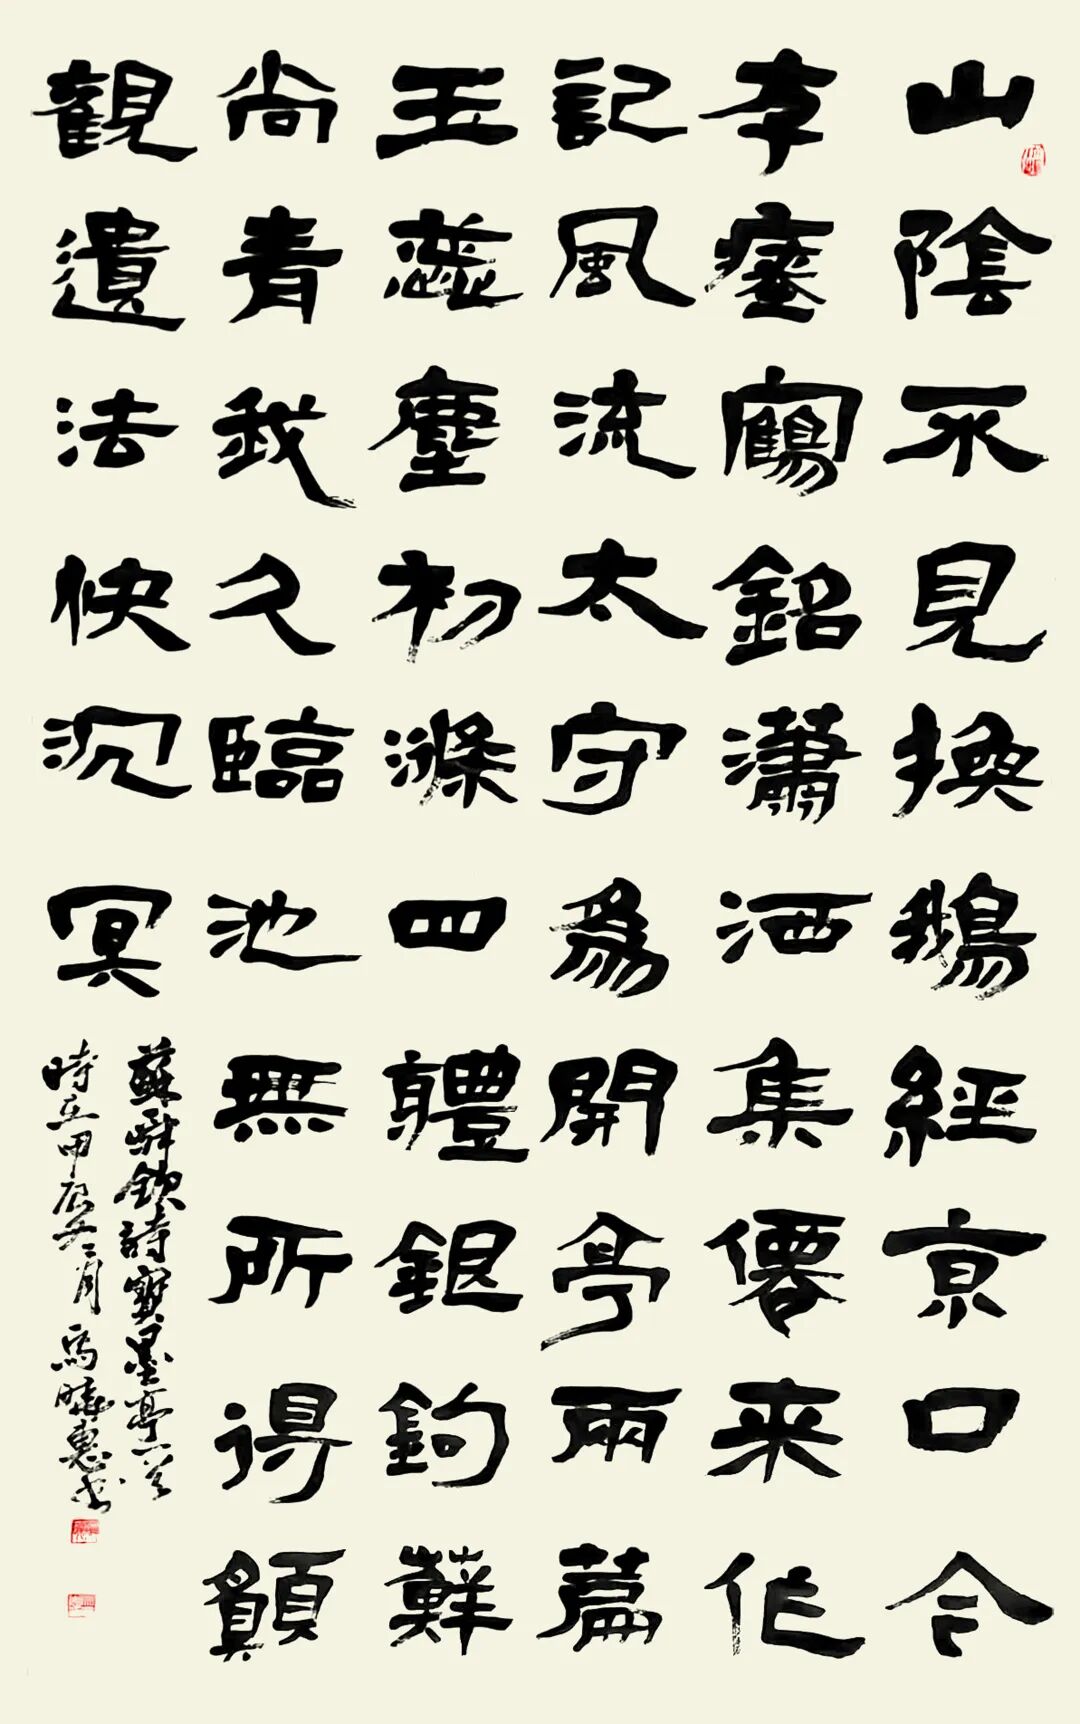 山陰不見換鵝經京口今
存瘞鶴銘瀟洒集僊来作
記風流太守為開亭兩篇
玉蕊塵初滌四體銀鉤蘚
尚青我久臨池無所得願
觀遺法快沉冥
蘇舜欽詩寶墨亭一首
時在甲辰二月曉惠書